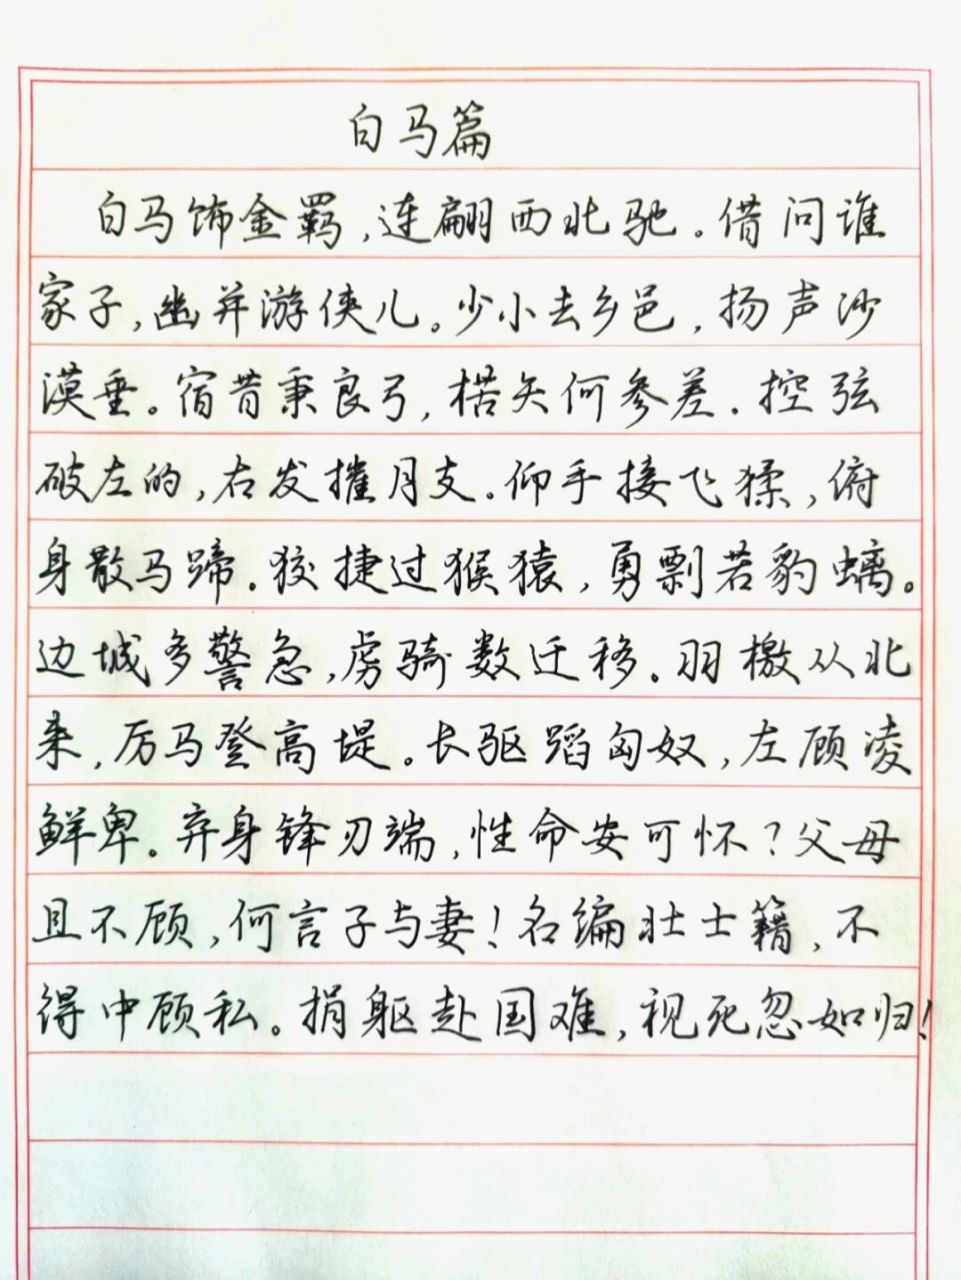 白马篇
白马饰金羁，连翩西北驰。借问谁
家子，幽并游侠儿。少小去乡邑，扬声沙
漠垂。宿昔秉良弓，楛矢何参差。控弦
破左的，右发摧月支。仰手接飞猱，俯
身散马蹄。狡捷过猴猿，勇剽若豹螭。
边城多警急，虏骑数迁移。羽檄从北
来，厉马登高堤。长驱蹈匈奴，左顾凌
鲜卑。弃身锋刃端，性命安可怀？父母
且不顾，何言子与妻！名编壮士籍，不
得中顾私。捐躯赴国难，视死忽如归！